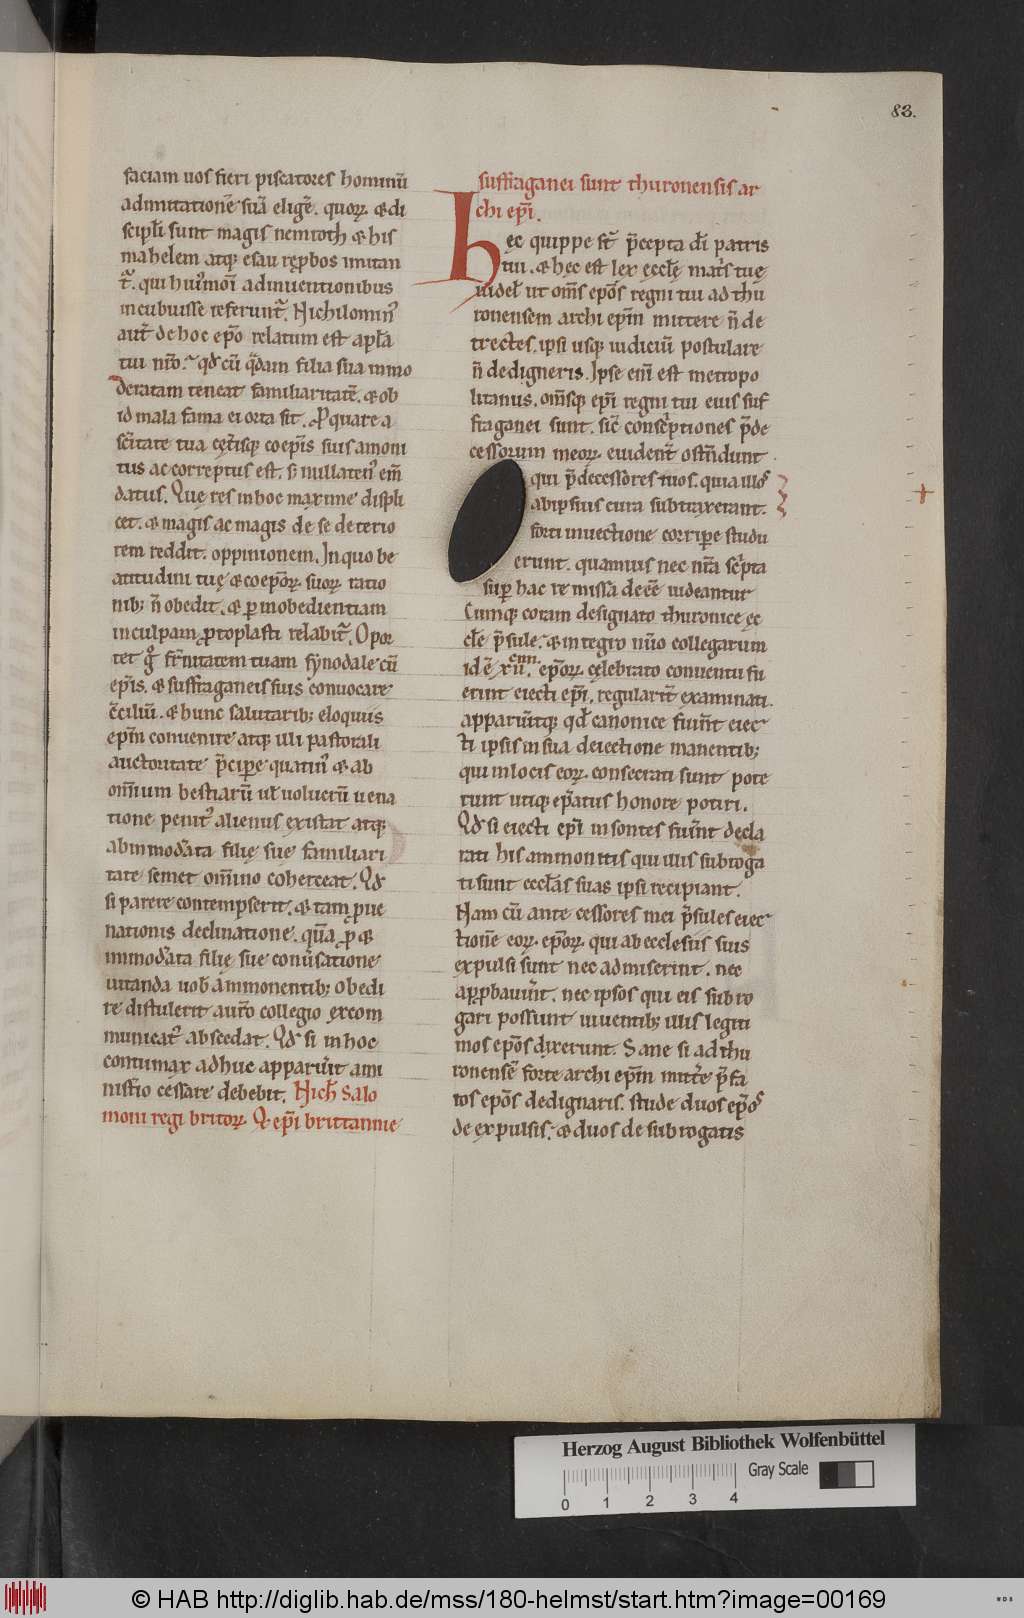 83.
faciam uos fieri piscatores hominū
ad imitationē suā eligē. quoꝝ. & di
scipĺi sunt magis nemroth & his
mahelem atqꝫ esau ręprobos imitan
t᷑. qui hui᷒mōi adinuentionibus
incubuisse referunt᷑. Nichilomin᷒
aut̄ de hoc ep̄o relatum est ap̄ła
tui nr̄o. qd̄ cū q̄dam filia sua inmo
deratam teneat familiaritatē. & ob
id mala fama ei orta sit. Ꝓ quare a
sc̄itate tua cęt̄isqꝫ coep̄is suis amoni
tus ac correptus est. s; nullaten᷒ em̄
datus. Que res in hoc maxime displi
cet. & magis ac magis de se deterio
rem reddit oppinionem. In quo be
atitudini tuę & coep̄oꝝ. suoꝝ ratio
nibꝫ n̄ obedit. & ꝑ inobedientiam
in culpam ꝓtoplasti relabit᷑. Opor
tet gͦ fr̄nitatem tuam synodale cū
ep̄is. & suffraganeis suis conuocare
c̄ciliū. & hunc salutaribꝫ eloquiis
ep̄m conuenire atqꝫ illi pastorali
auctoritate p̄cipere quatin᷒ & ab
om̄ium bestiarū uł uolucrū uena
tione penit᷒ alienus existat atqꝫ
ab inmod̄ata filię suę familiari
tate semet om̄ino coherceat. Qd̄
si parere contempserit. & tam ꝓue
nationis declinatione. quā ꝓ &
inmod̄ata filię suę conūsatione
uitanda uob̄ ammonentibꝫ obedi
re distulerit aur̄o collegio excom
municat᷒ abscedat. Qd̄ si in hoc
contumax adhuc apparūit a mi
nist̄io cessare debebit. Nicħ Salo
moni regi britoꝝ. Qd̄ ep̄i brittannie
suffraganei sunt thuronensis ar
chi ep̄i.
Hęc quippe st̄ p̄cepta dī patris
tui. & hęc est lex ecclę̄ mat̄s tuę
uidet ut om̄s ep̄os regni tui ad thu
ronensem archi ep̄m mittere n̄ de
trectes. ipsi usqꝫ iudiciū postulare
n̄ dedigneris. Ipse em̄ est metropo
litanus. om̄sqꝫ ep̄i regni tui eius suf
fraganei sunt. sic̄ consc̄ptiones p̄de
cessorum meoꝝ. euident̄ ostn̄dunt
qui p̄decessores tuos. quia illos
ab ipsius cura subtraxerant.
forti inuectione corripe studu
erunt. quamuis nec nr̄a sc̄pta
suꝑ hac re missa deēē uideantur
Cumqꝫ coram designato thuronice ec
clē p̄sule. & integro nūo collegarum
id ē xii. ep̄oꝝ. celebrato conuentu fu
erunt eiecti ep̄i. regularit̄ examinati.
apparūitqꝫ qd̄ canonice fuin̄t eiec
ti ipsis in sua deiectione manentibꝫ
qui in locis eoꝝ. consecrati sunt pote
runt utiqꝫ ep̄atus honore potiri.
Qd̄ si eiecti ep̄i insontes fuin̄t decla
rati his ammonitis qui illis subroga
ti sunt eccłas suas ipsi recipiant.
Nam cū ante cessores mei p̄sules eiec
tionē eoꝝ. ep̄oꝝ. qui ab ecclesiis suis
expulsi sunt nec admiserint. nec
apꝓbauin̄t. nec ipsos qui eis subro
gari possunt uiuentibꝫ illis legiti
mos ep̄os dixerunt. Sane si ad thu
ronensē forte archi ep̄m mitt̄e p̄fa
tos ep̄os dedignaris. stude duos ep̄os
de expulsis. & duos de subrogatis
Herzog August Bibliothek Wolfenbüttel
Gray Scale
0 1 2 3 4
© HAB http://diglib.hab.de/mss/180-helmst/start.htm?image=00169